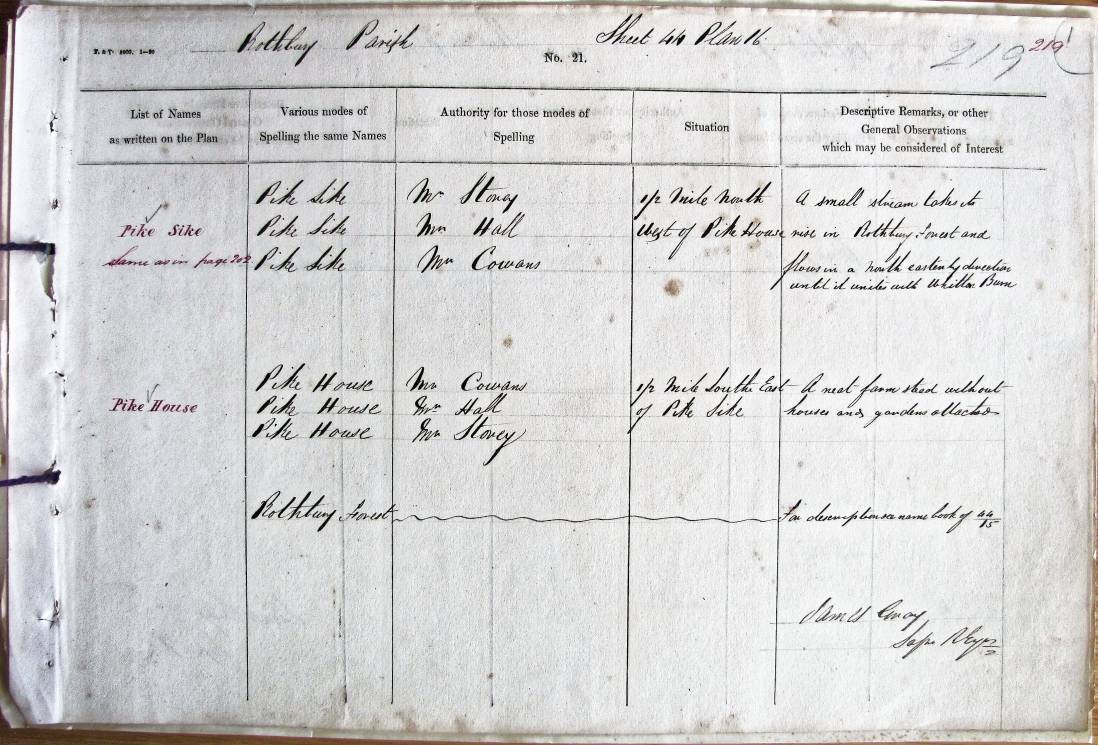 Rothbury Parish
Sheet 44 Plan 16
No. 21.
219
219
List of Names
as written on the Plan
Various modes of
Spelling the same Names
Authority for those modes of
Spelling
Situation
Descriptive Remarks, or other
General Observations
which may be considered of Interest
Pike Sike
Same as in page 202
Pike Sike
Pike Sike
Pike Sike
Mr Storey
Mr Hall
Mr Cowans
1/2 Mile North
West of Pike House
A small stream takes its
rise in Rothbury Forest and
flows in a north easterly direction
until it unites with Whitton Burn
Pike House
Pike House
Pike House
Pike House
Mr Cowans
Mr Hall
Mr Storey
1/2 Mile South East
of Pike Sike
A neat farm stead without
houses and gardens attached
Rothbury Forest
For description see name book of 44/15
James
Sapr REngrs